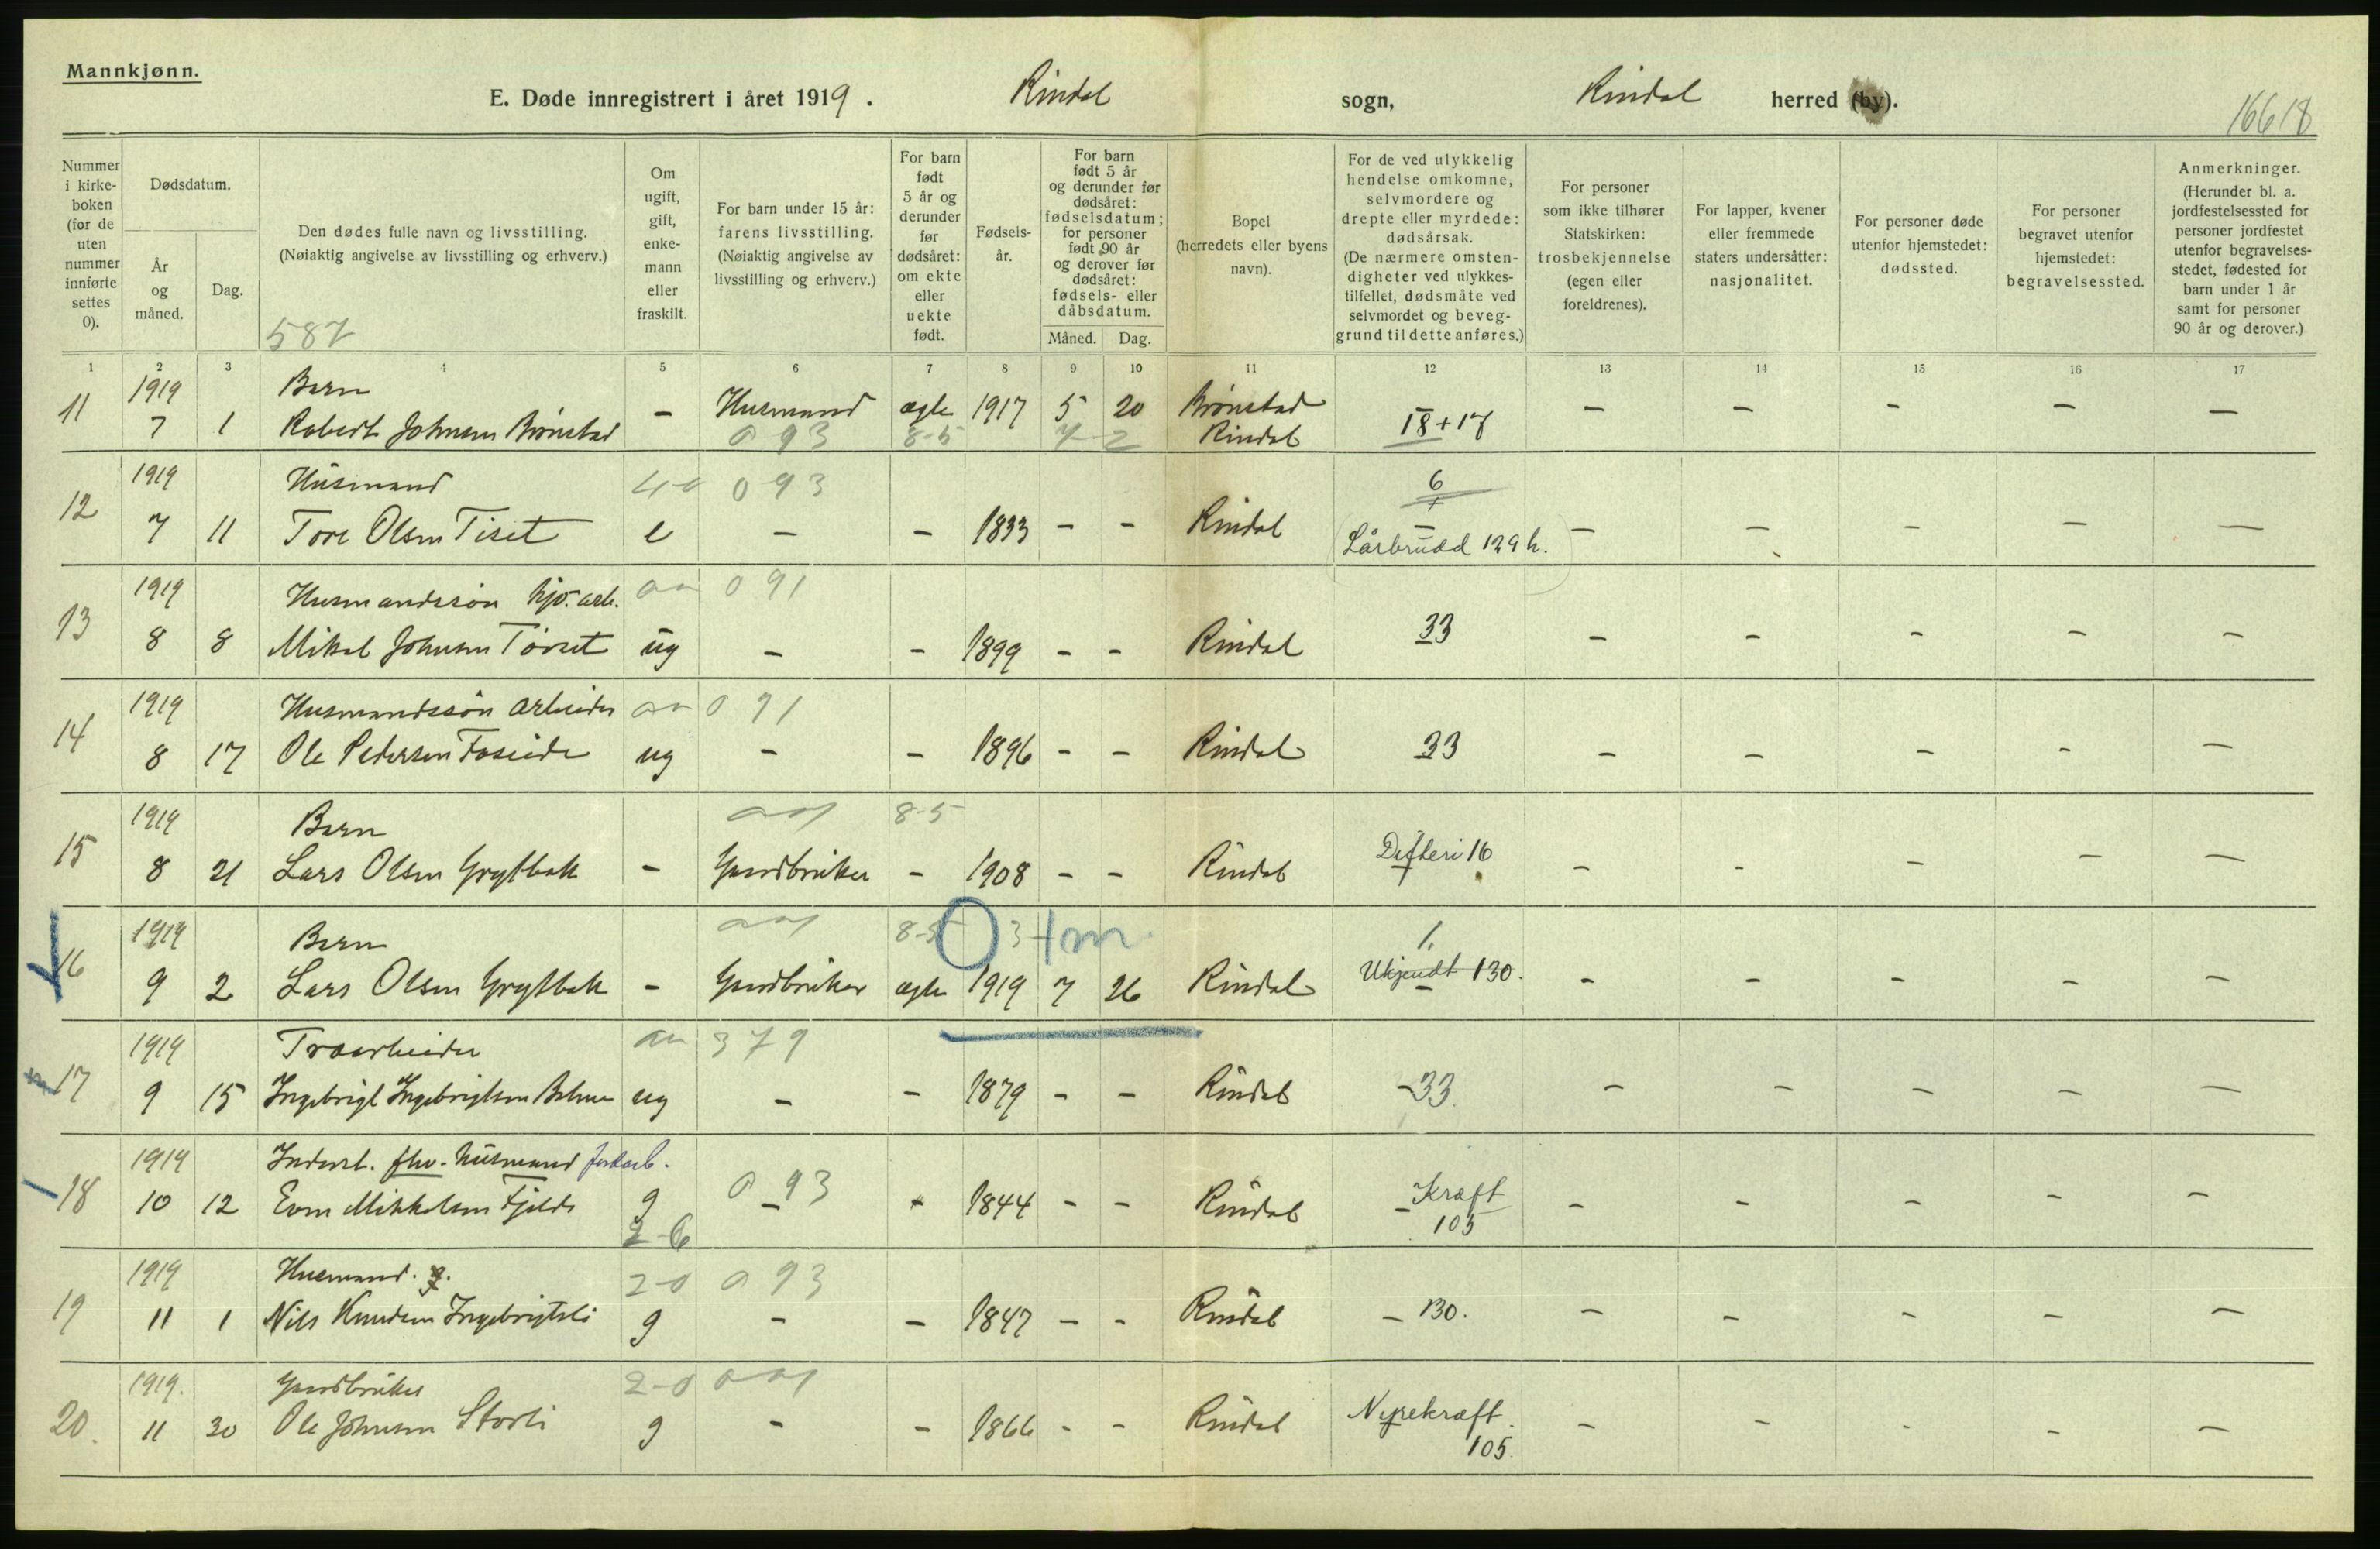 Mannkjønn.
E. Døde innregistrert i året 1919. Rindal sogn, Rindal herred (by).
16618
Nummer i kirke-boken (for de uten nummer innførte settes 0).
Dødsdatum.
År og måned.
Dag.
Den dødes fulle navn og livsstilling. (Nøiaktig angivelse av livsstilling og erhverv.)
587
Om ugift, gift, enke-mann eller fraskilt.
For barn under 15 år: farens livsstilling. (Nøiaktig angivelse av livsstilling og erhverv.)
For barn født 5 år og derunder før dødsåret: om ekte eller uekte født.
Fødsels-år.
For barn født 5 år og derunder før dødsåret: fødselsdatum; for personer født 90 år og derover før dødsåret: fødsels- eller dåbsdatum.
Måned. Dag.
Bopel (herredets eller byens navn).
For de ved ulykkelig hendelse omkomne, selvmordere og drepte eller myrdede: dødsårsak. (De nærmere omsten-digheter ved ulykkes-tilfellet, dødsmåte ved selvmordet og beveg-grund til dette anføres.)
For personer som ikke tilhører Statskirken: trosbekjennelse (egen eller foreldrenes).
For lapper, kvener eller fremmede staters undersåtter: nasjonalitet.
For personer døde utenfor hjemstedet: dødssted.
For personer begravet utenfor hjemstedet: begravelsessted.
Anmerkninger. (Herunder bl. a. jordfestelsessted for personer jordfestet utenfor begravelses-stedet, fødested for barn under 1 år samt for personer 90 år og derover.)
1 2 3 4 5 6 7 8 9 10 11 12 13 14 15 16 17
1919 Barn
11 7 1 Robert Johnsen Brønstad - Husmand ægte 1917 5 20 Brønstad Rindal 18+17 - - - - -
093 8-5 7 2
1919 Husmand 4-0 093 6
12 7 11 Tore Olsen Tiset e - - 1833 - - Rindal - - - - - -
Lårbrudd 129 h.
1919 Husmandssøn hjv. arb. 091
13 8 8 Mikal Johnsen Tørset ug - - 1899 - - Rindal 33 - - - - -
1919 Husmandssøn arbeider 091
14 8 17 Ole Pedersen Foseide ug - - 1896 - - Rindal 33 - - - - -
1919 Barn 8-5
15 8 21 Lars Olsen Grytbak - Gardbruker - 1908 - - Rindal Difteri 16 - - - - -
1919 Barn 8-5 3 1 m 1.
16 9 2 Lars Olsen Grytbak - Gardbruker ægte 1919 7 26 Rindal Ukjendt 130. - - - - -
1919 Træarbeider 379
17 9 15 Ingebrigt Ingebrigtsen Bolme ug - - 1879 - - Rindal - 33. - - - - -
1919 Inderst. fhv. husmand jordarb. 093
18 10 12 Even Mikkelsen Fjelde g - - 1844 - - Rindal - Kræft 105 - - - - -
2-6
1919 Husmand. g. 2-0 093
19 11 1 Nils Knudsen Ingebrigtsli g - - 1847 - - Rindal - 130. - - - - -
1919. Gardbruker 2-0
20. 11 30 Ole Johnsen Storli g - - 1866 - - Rindal Nyrekræft. 105. - - - - -